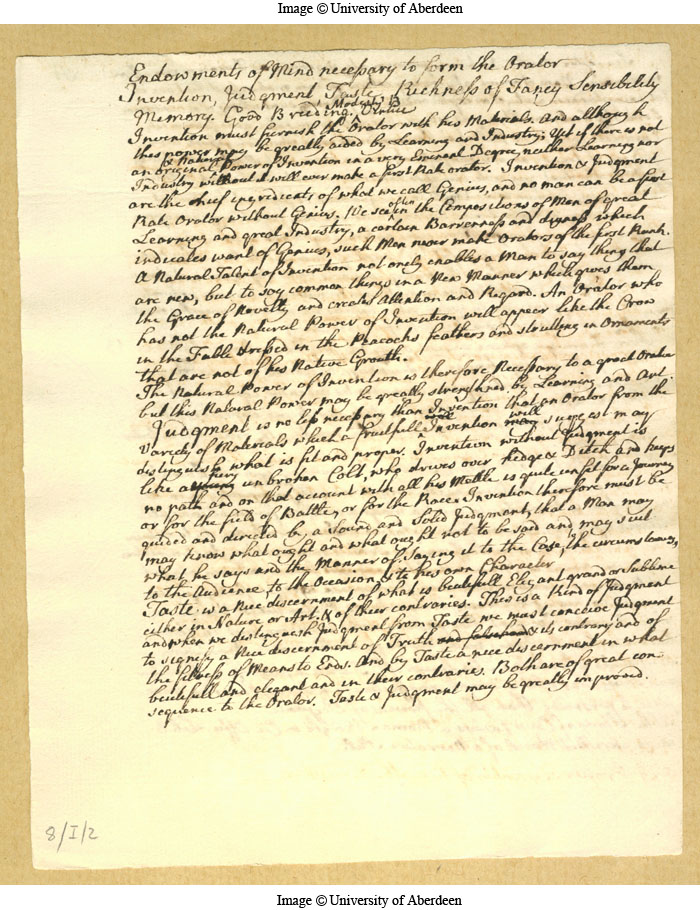 Image © University of Aberdeen
Endowments of Mind necessary to form the Orator
Invention, Judgment Taste, Richness of Fancy Sensibility
Memory. Good Breeding, Modesty Virtue
Invention must furnish the Orator with his Materials, and although
this power may be greatly aided by Learning and Industry; Yet if there is not
an original & Natural Power of Invention in a very Eminent Degree, neither Learning nor
Industry without it will ever make a first Rate orator. Invention & Judgment
are the chief ingredients of what we call Genius, and no man can be a first
Rate Orator without Genius. We see often in the Compositions of Men of great
Learning and great Industry, a certain Barrenness and dryness which
indicates want of Genius, such Men never make Orators of the first Rank.
A Natural Talent of Invention not onely enables a Man to say thing that
are new, but to say common things in a New Manner which gives them
the Grace of Novelty and creates Attention and Regard. An Orator who
has not the Natural Power of Invention will appear like the Crow
in the Fable dressed in the Peacocks feathers and strutting in Ornaments
that are not of his Native Grouth.
The Natural Power of Invention is therefore Necessary to a great Orator
but this Natural Power may be greatly strengthned by Learning and Art.
Judgment is no less necessary than Invention that an Orator from the
variety of Materials which a fruitfull Invention will suggest may
distinguish what is fit and proper. Invention without Judgment is
like a fiery unbroken Colt, who drives over Hedge & Ditch and keeps
no path and on that account with all his Mettle is quite unfit for a Journey
or for the field of Battle, or for the Race. Invention therefore must be
guided and directed by a Sound and Solid Judgment, that a Man may
may know what ought and what ought not to be said and may suit
what he says and the Manner of Saying it to the Case, the circumstances,
to the Audience to the Occasion & to his own Character
Taste is a Nice discernment of what is beutifull Elegant grand or Sublime
either in Nature or Art. & of their contraries. This is a Kind of Judgment
and when we distinguish Judgment from Taste we must conceive Judgment
to signify a Nice discernment of Truth and falsehood & its contrary and of
the fitness of Means to Ends. And by Taste a nice discernment in what
beutifull and elegant and in their contraries. Both are of great con
sequence to the Orator. Taste & Judgment may be greatly improved.
8/I/2
Image © University of Aberdeen